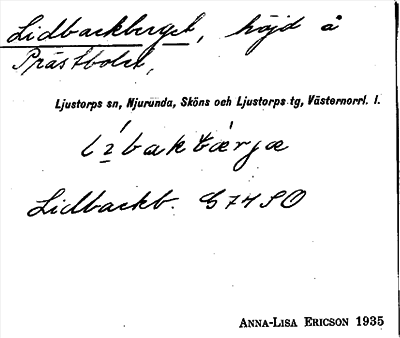 Lidbackberget, höjd å
Prästbolet,
Ljustorps sn, Njurunda, Sköns och Ljustorps tg, Västernorrl. l.
Lidbackb. G 74 SO
ANNA-LISA ERICSON 1935